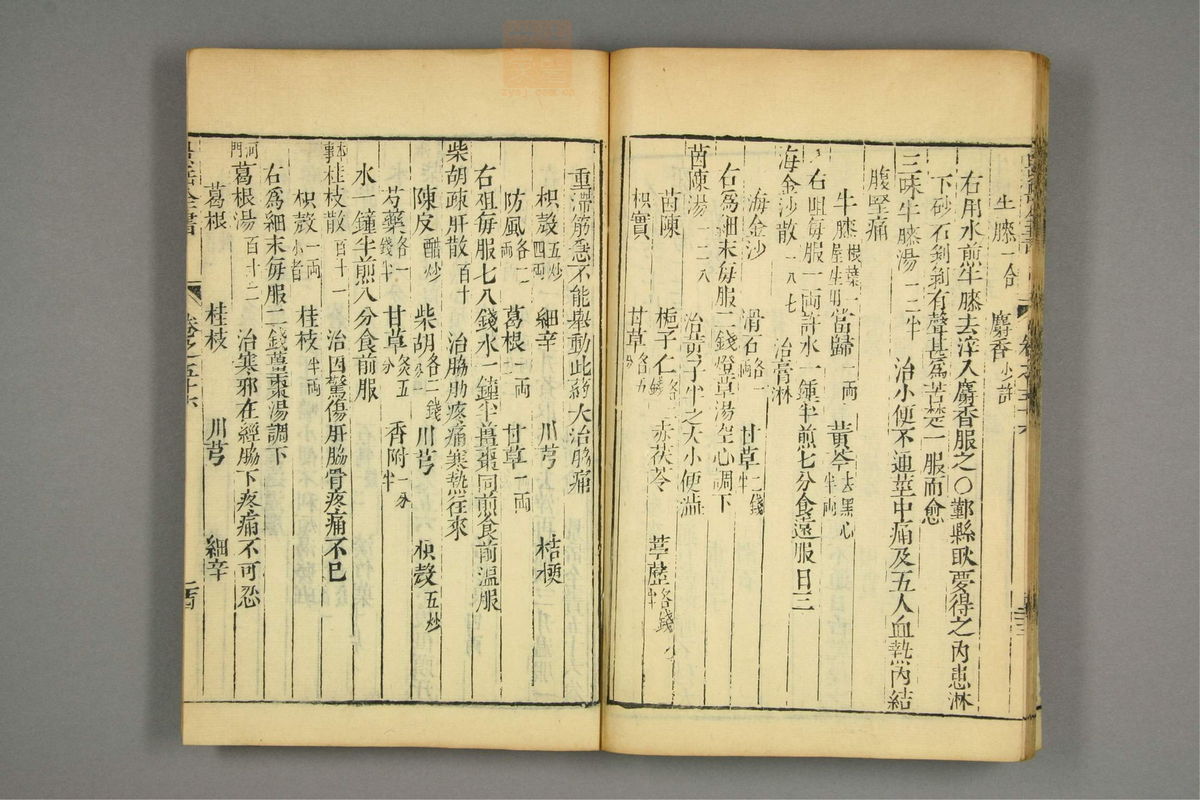 生膝一合 麝香少許
右用水煎牛膝去滓入麝香服之〇鄞縣耿夢得之內患淋
下砂石剝剝有聲甚為苦楚一服而愈
三味牛膝湯 治小便不通莖中痛及五人血熱內結
腹堅痛
牛膝 當歸一兩 黃芩去黑心半兩
右㕮每服一兩許水一鍾半煎七分食遠服日三
海金沙散 一八七 治膏淋
海金沙 滑石各一兩 甘草二錢半
右為細末每服二錢燈草湯空心調下
茵陳湯一二八 大小便澁
茵陳 梔子仁 赤茯苓 葶藶
枳實 甘草各五分
重滯筋急不能舉動此藥大治脇痛
枳殼五炒四兩 細辛 川芎 桔梗
防風各一兩 葛根 甘草一兩
右咀每服七八錢水一鍾半薑棗同煎食前溫服
柴胡疎肝散百十 治脇肋疼痛寒熱往來
陳皮醋炒 柴胡各二錢 川芎 枳殼五炒
芍藥各一錢半 甘草炙五分 香附一分半
水一鍾半煎八分食前服
桂枝散百十一 治因驚傷肝脇骨疼痛不已
枳殼一兩小者 桂枝半兩
右為細末每服二錢薑棗湯調下
河間葛根湯百十二 治寒邪在經脇下疼痛不可忍
葛根 桂枝 川芎 細辛